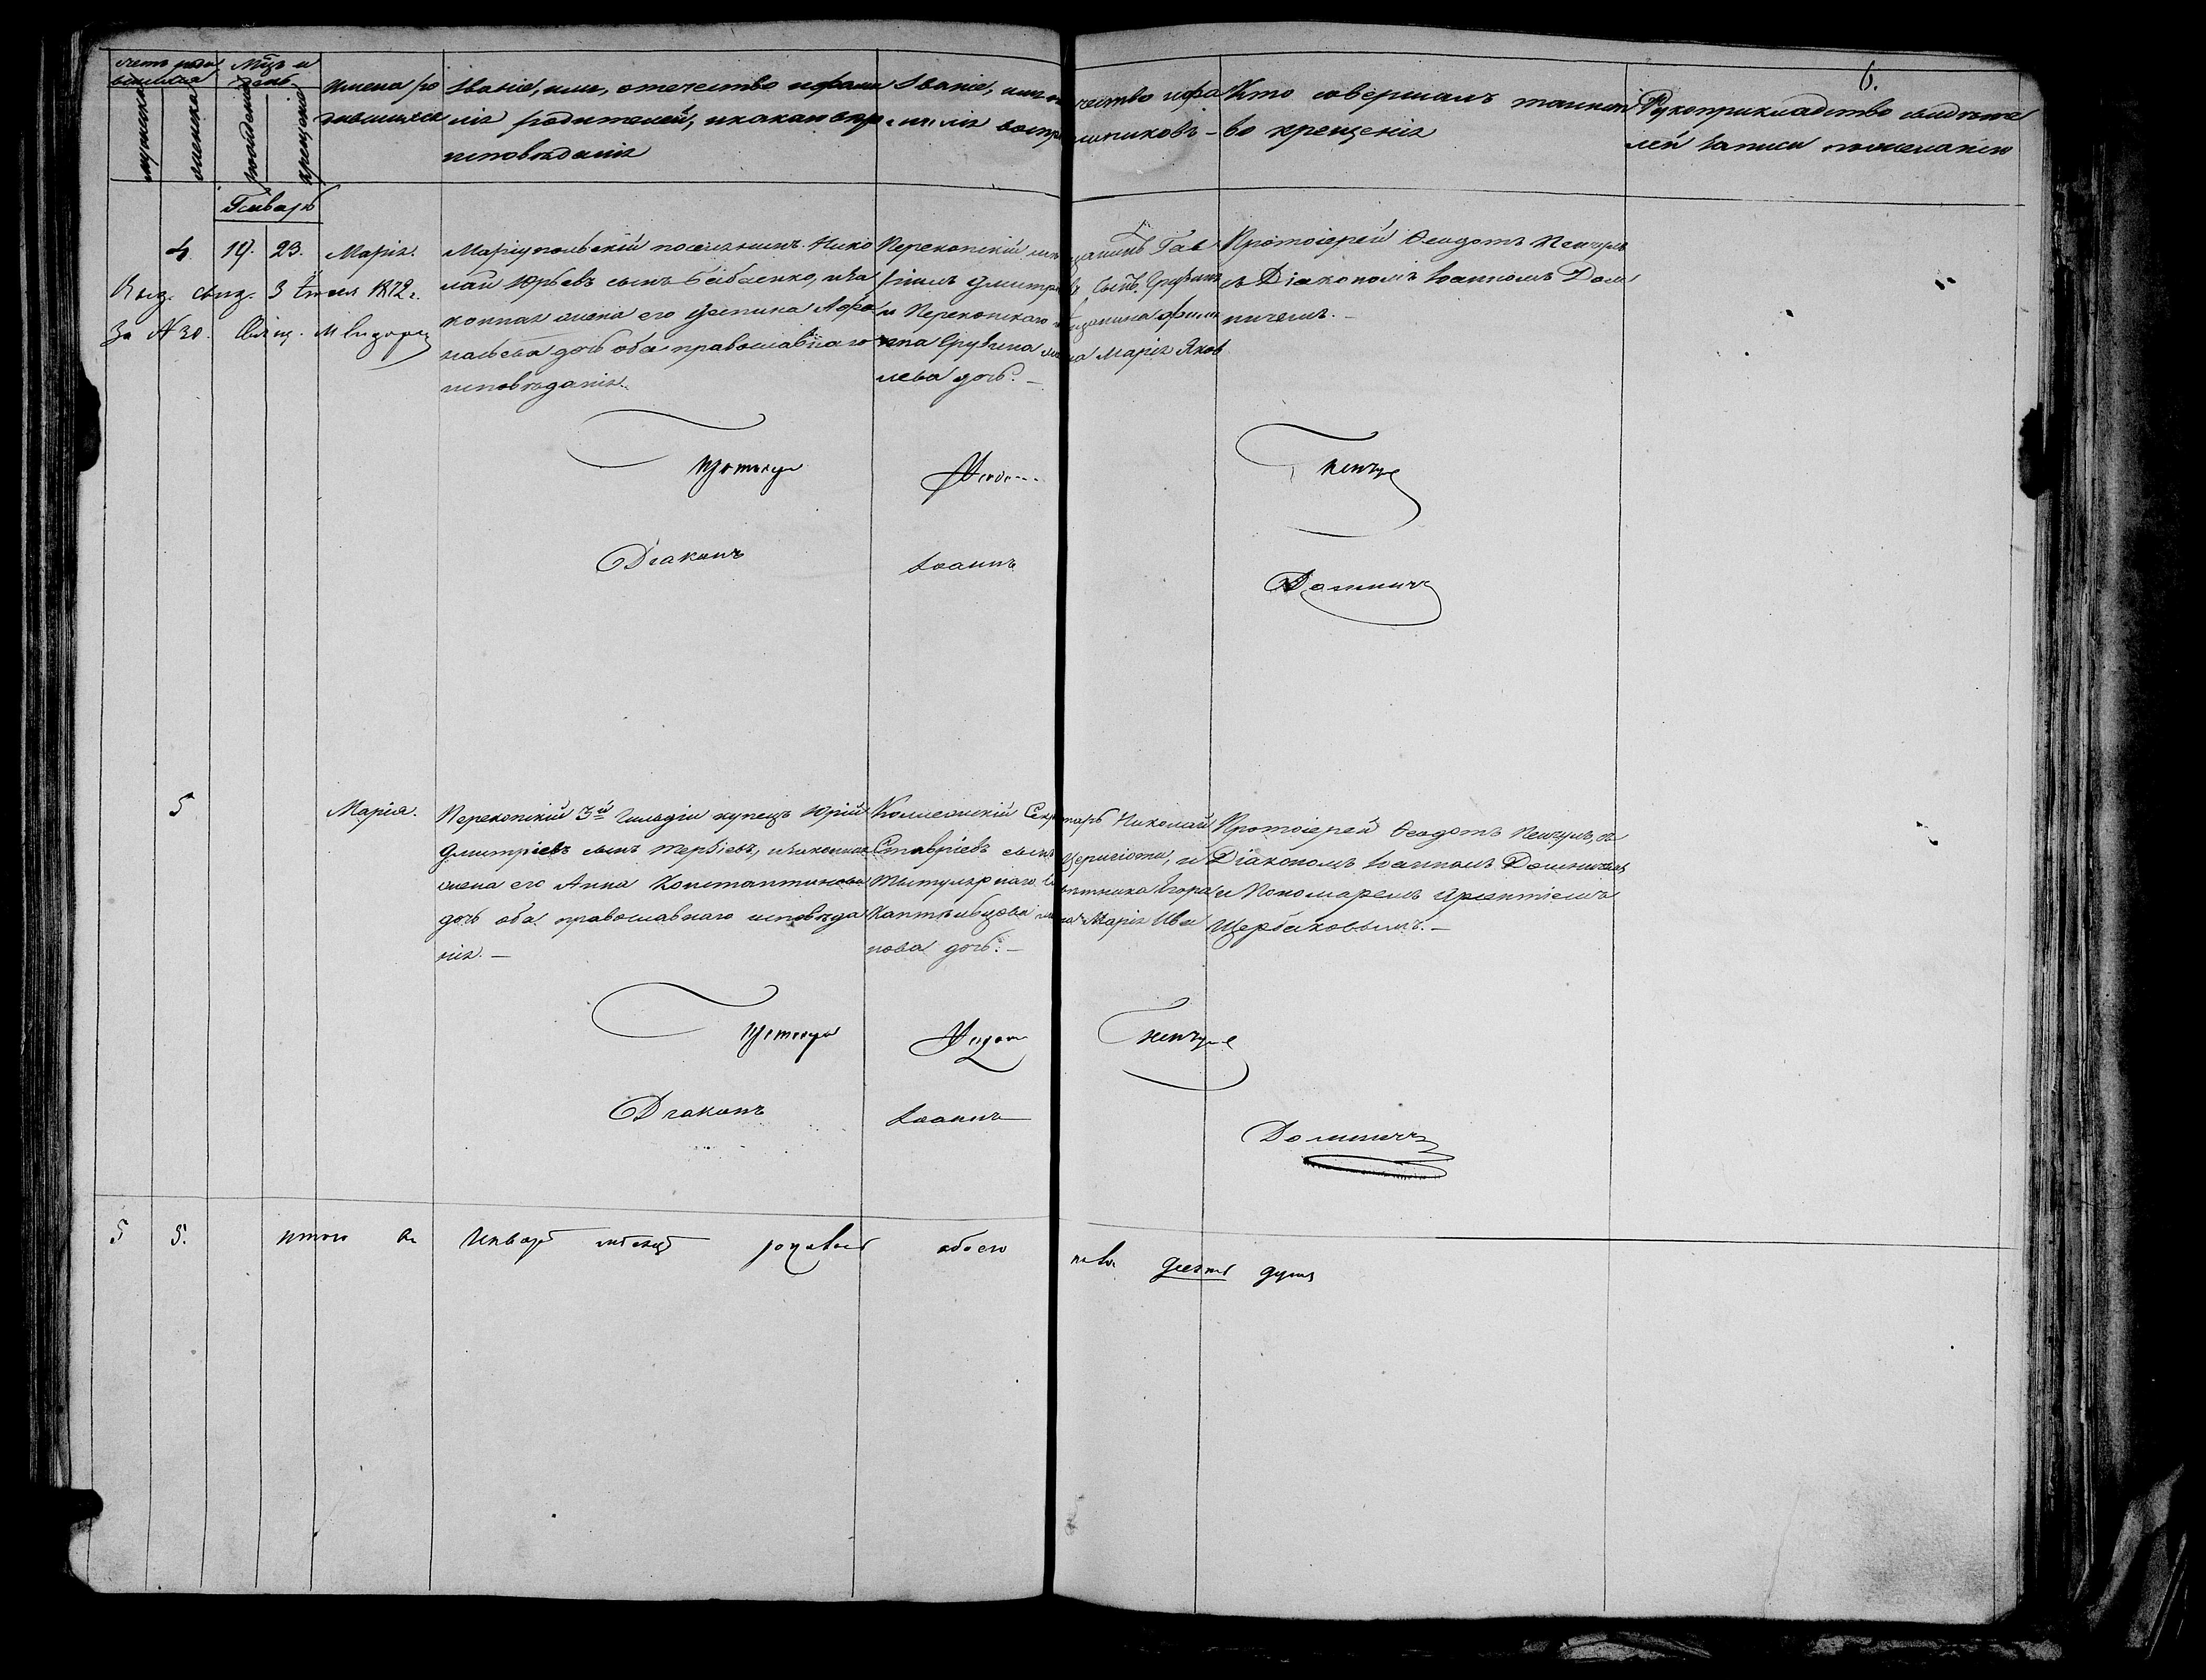 6.
Счетъ роди
вшихся
Мцъ и
день
мужеска
женска
рожденія
крещенія
Имена ро
дившихся
Званіе, имя, отечество и фами
лія родителей, и какого вѣро
исповѣданія
Званіе, имя о чество и фа
милія воспрі емниковъ –
Кто совершалъ таинст
во крещенія
Рукоприкладство свидѣте
лей записи по желанію
Генварь
4 19. 23. Марія.
Выд. свид. 3 1872 г.
За № 30. Свящ.
Маріупольскій поселянинъ Нико
лай Юрьевъ сынъ Бабенко, и за
конная жена его Устина Афа
насьева дочь оба православнаго
исповѣданія.
Перекопскій мѣ щанинъ Гав
ріилъ Дмитріе въ сынъ
и Перекопскаго мѣ щанина Фили
ппа жена Марія Яков
лева дочь. –
Протоіерей Ѳеодотъ Ненчулъ
съ Діакономъ Іоанномъ Дом
ничемъ. –
Протоіерей Ѳеодотъ Ненчулъ
Діаконъ Іоаннъ Домничъ
5 Марія.
Перекопскій 3й Гильдіи купецъ Юрій
Дмитріевъ сынъ Терзіевъ, и законная
жена его Анна Константинова
дочь оба православнаго исповѣда
нія. –
Коллежскій Секре тарь Николай
Ставріевъ сынъ и
Титулярнаго Со вѣтника Егора
жена Марія Ива
нова дочь. –
Протоіерей Ѳеодотъ Ненчулъ, съ
Діакономъ Іоанномъ Домничемъ
и Пономаремъ Арсентіемъ
Щербаковымъ. –
Протоіерей Ѳеодотъ Ненчулъ
Діаконъ Іоаннъ Домничъ
5 5. Итого въ Январѣ мѣсяцѣ родилось обоего пола десять душъ